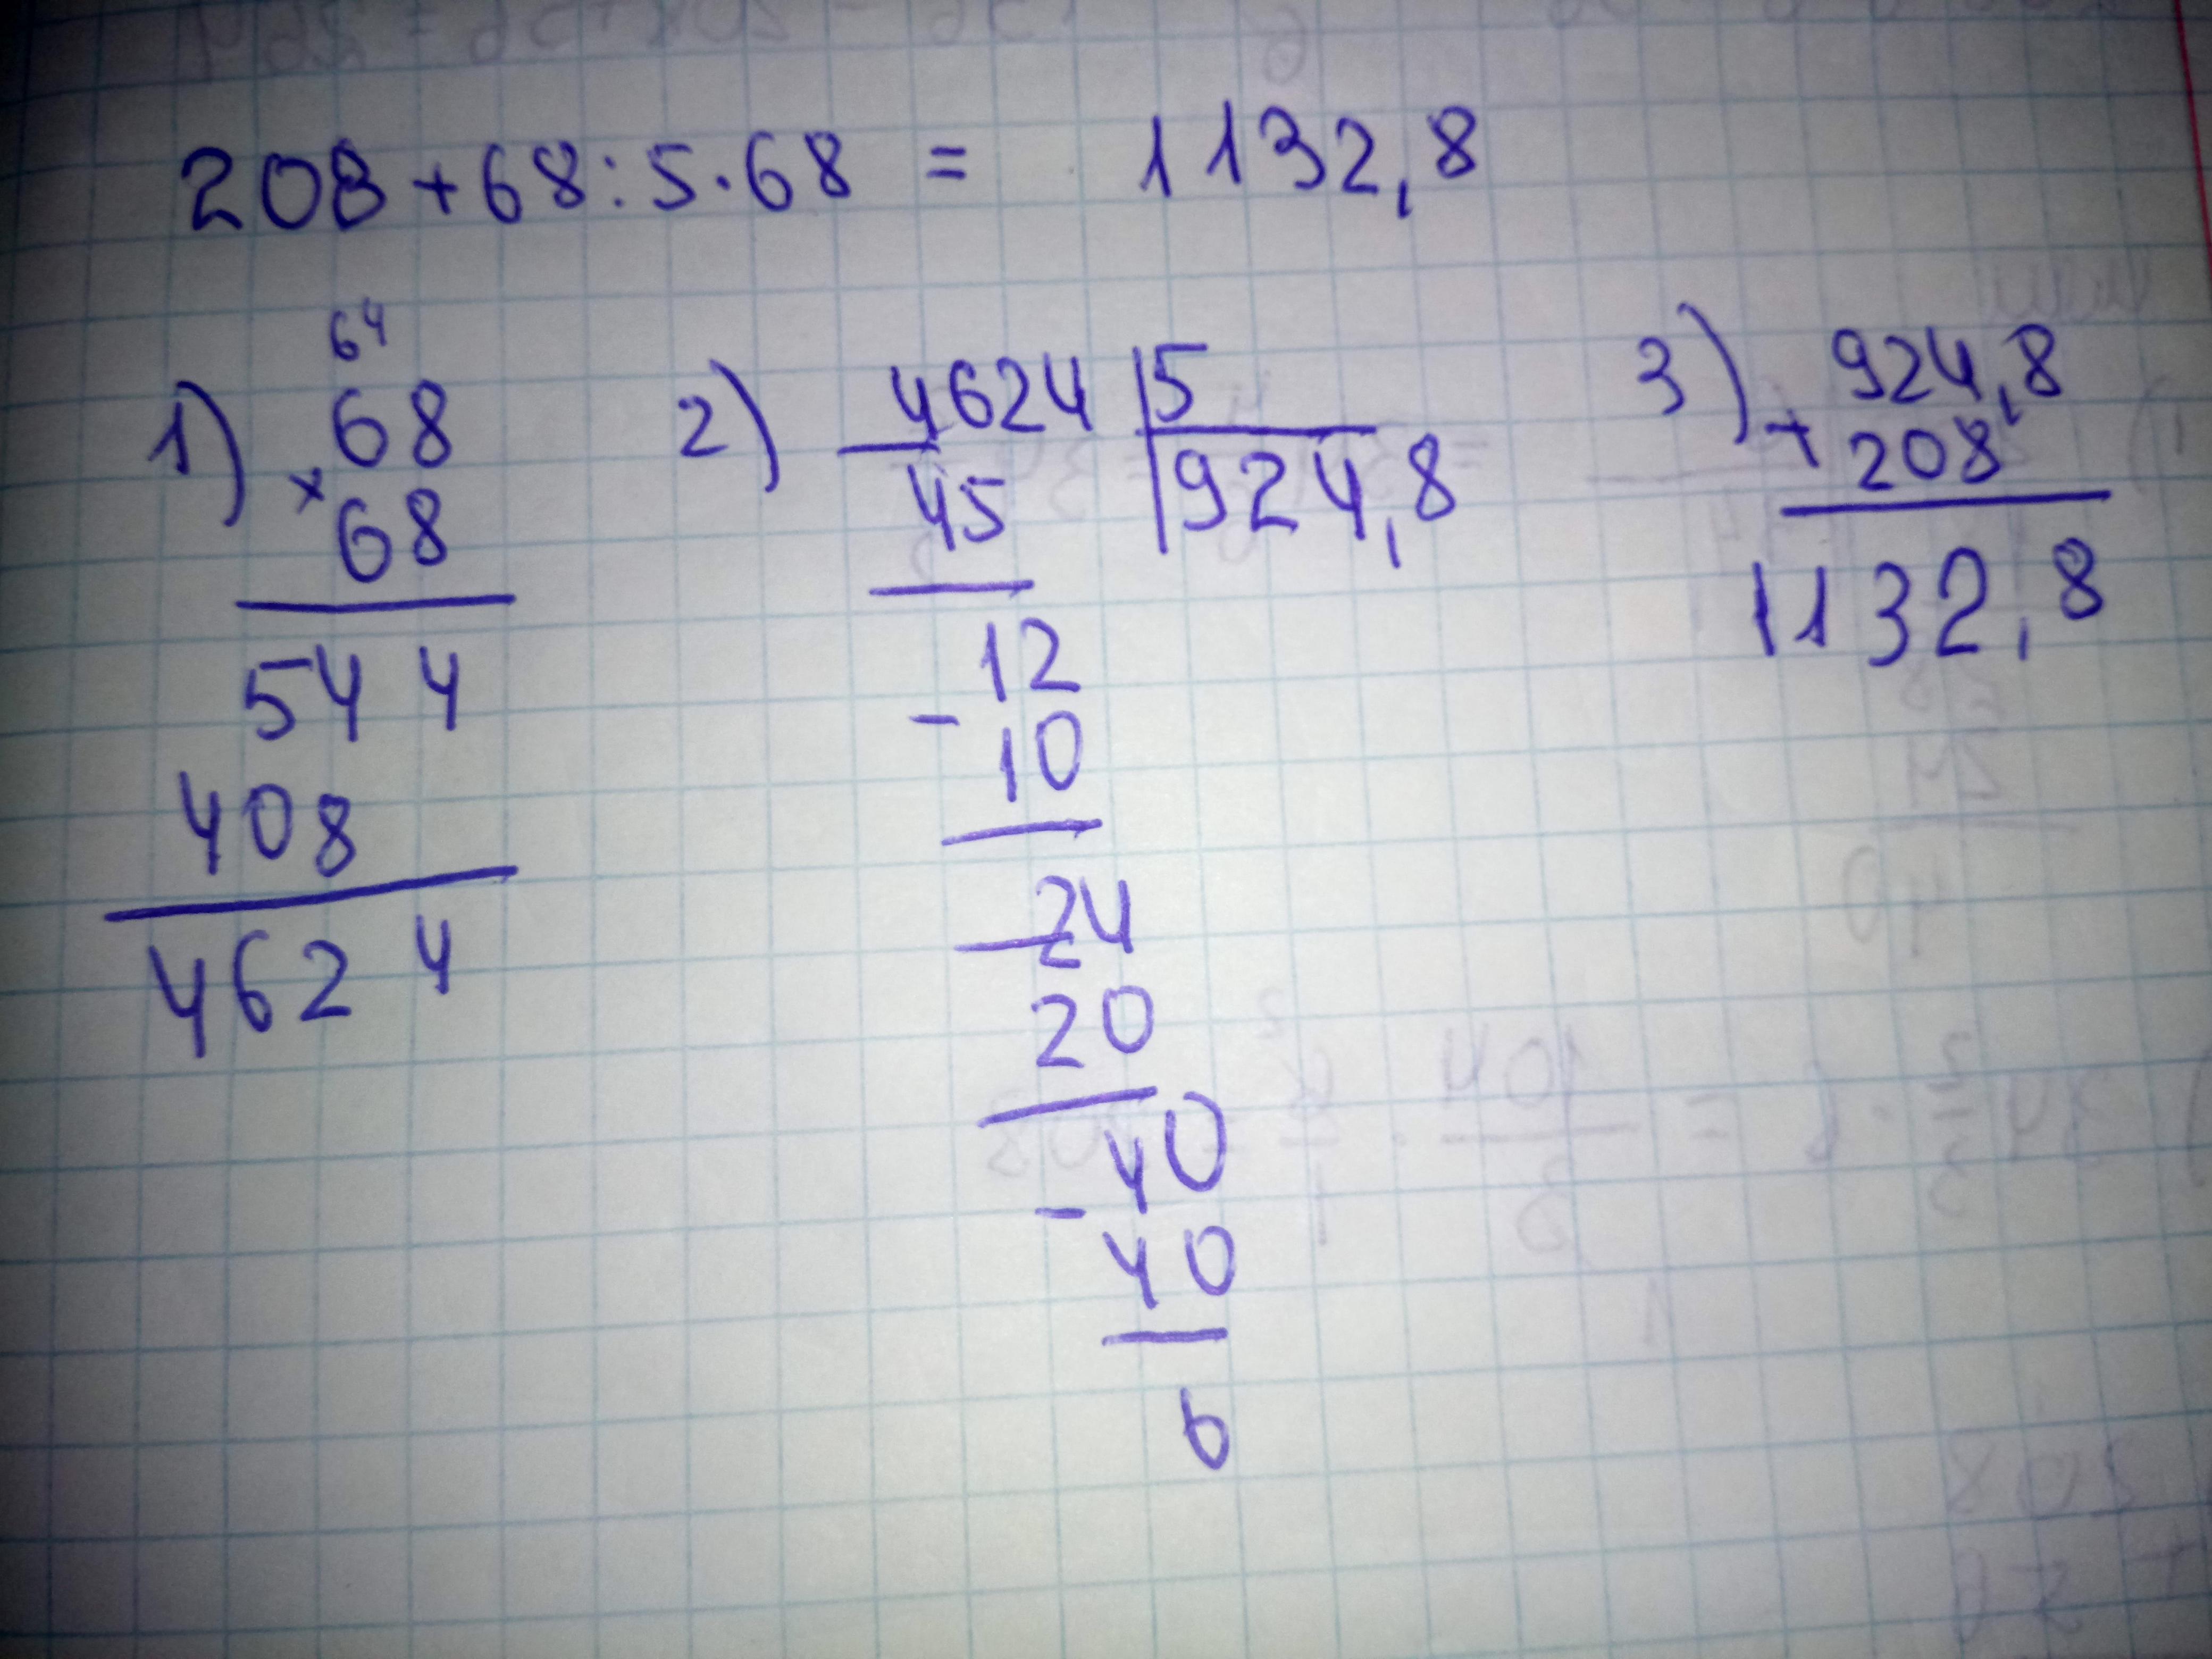 208 + 68 : 5 · 68 = 1132,8
1)
64
68
×
68
544
408
4624
2)
4624 | 5
924,8
−
45
12
−
10
24
−
20
40
−
40
6
3)
924,8
+
208
1132,8